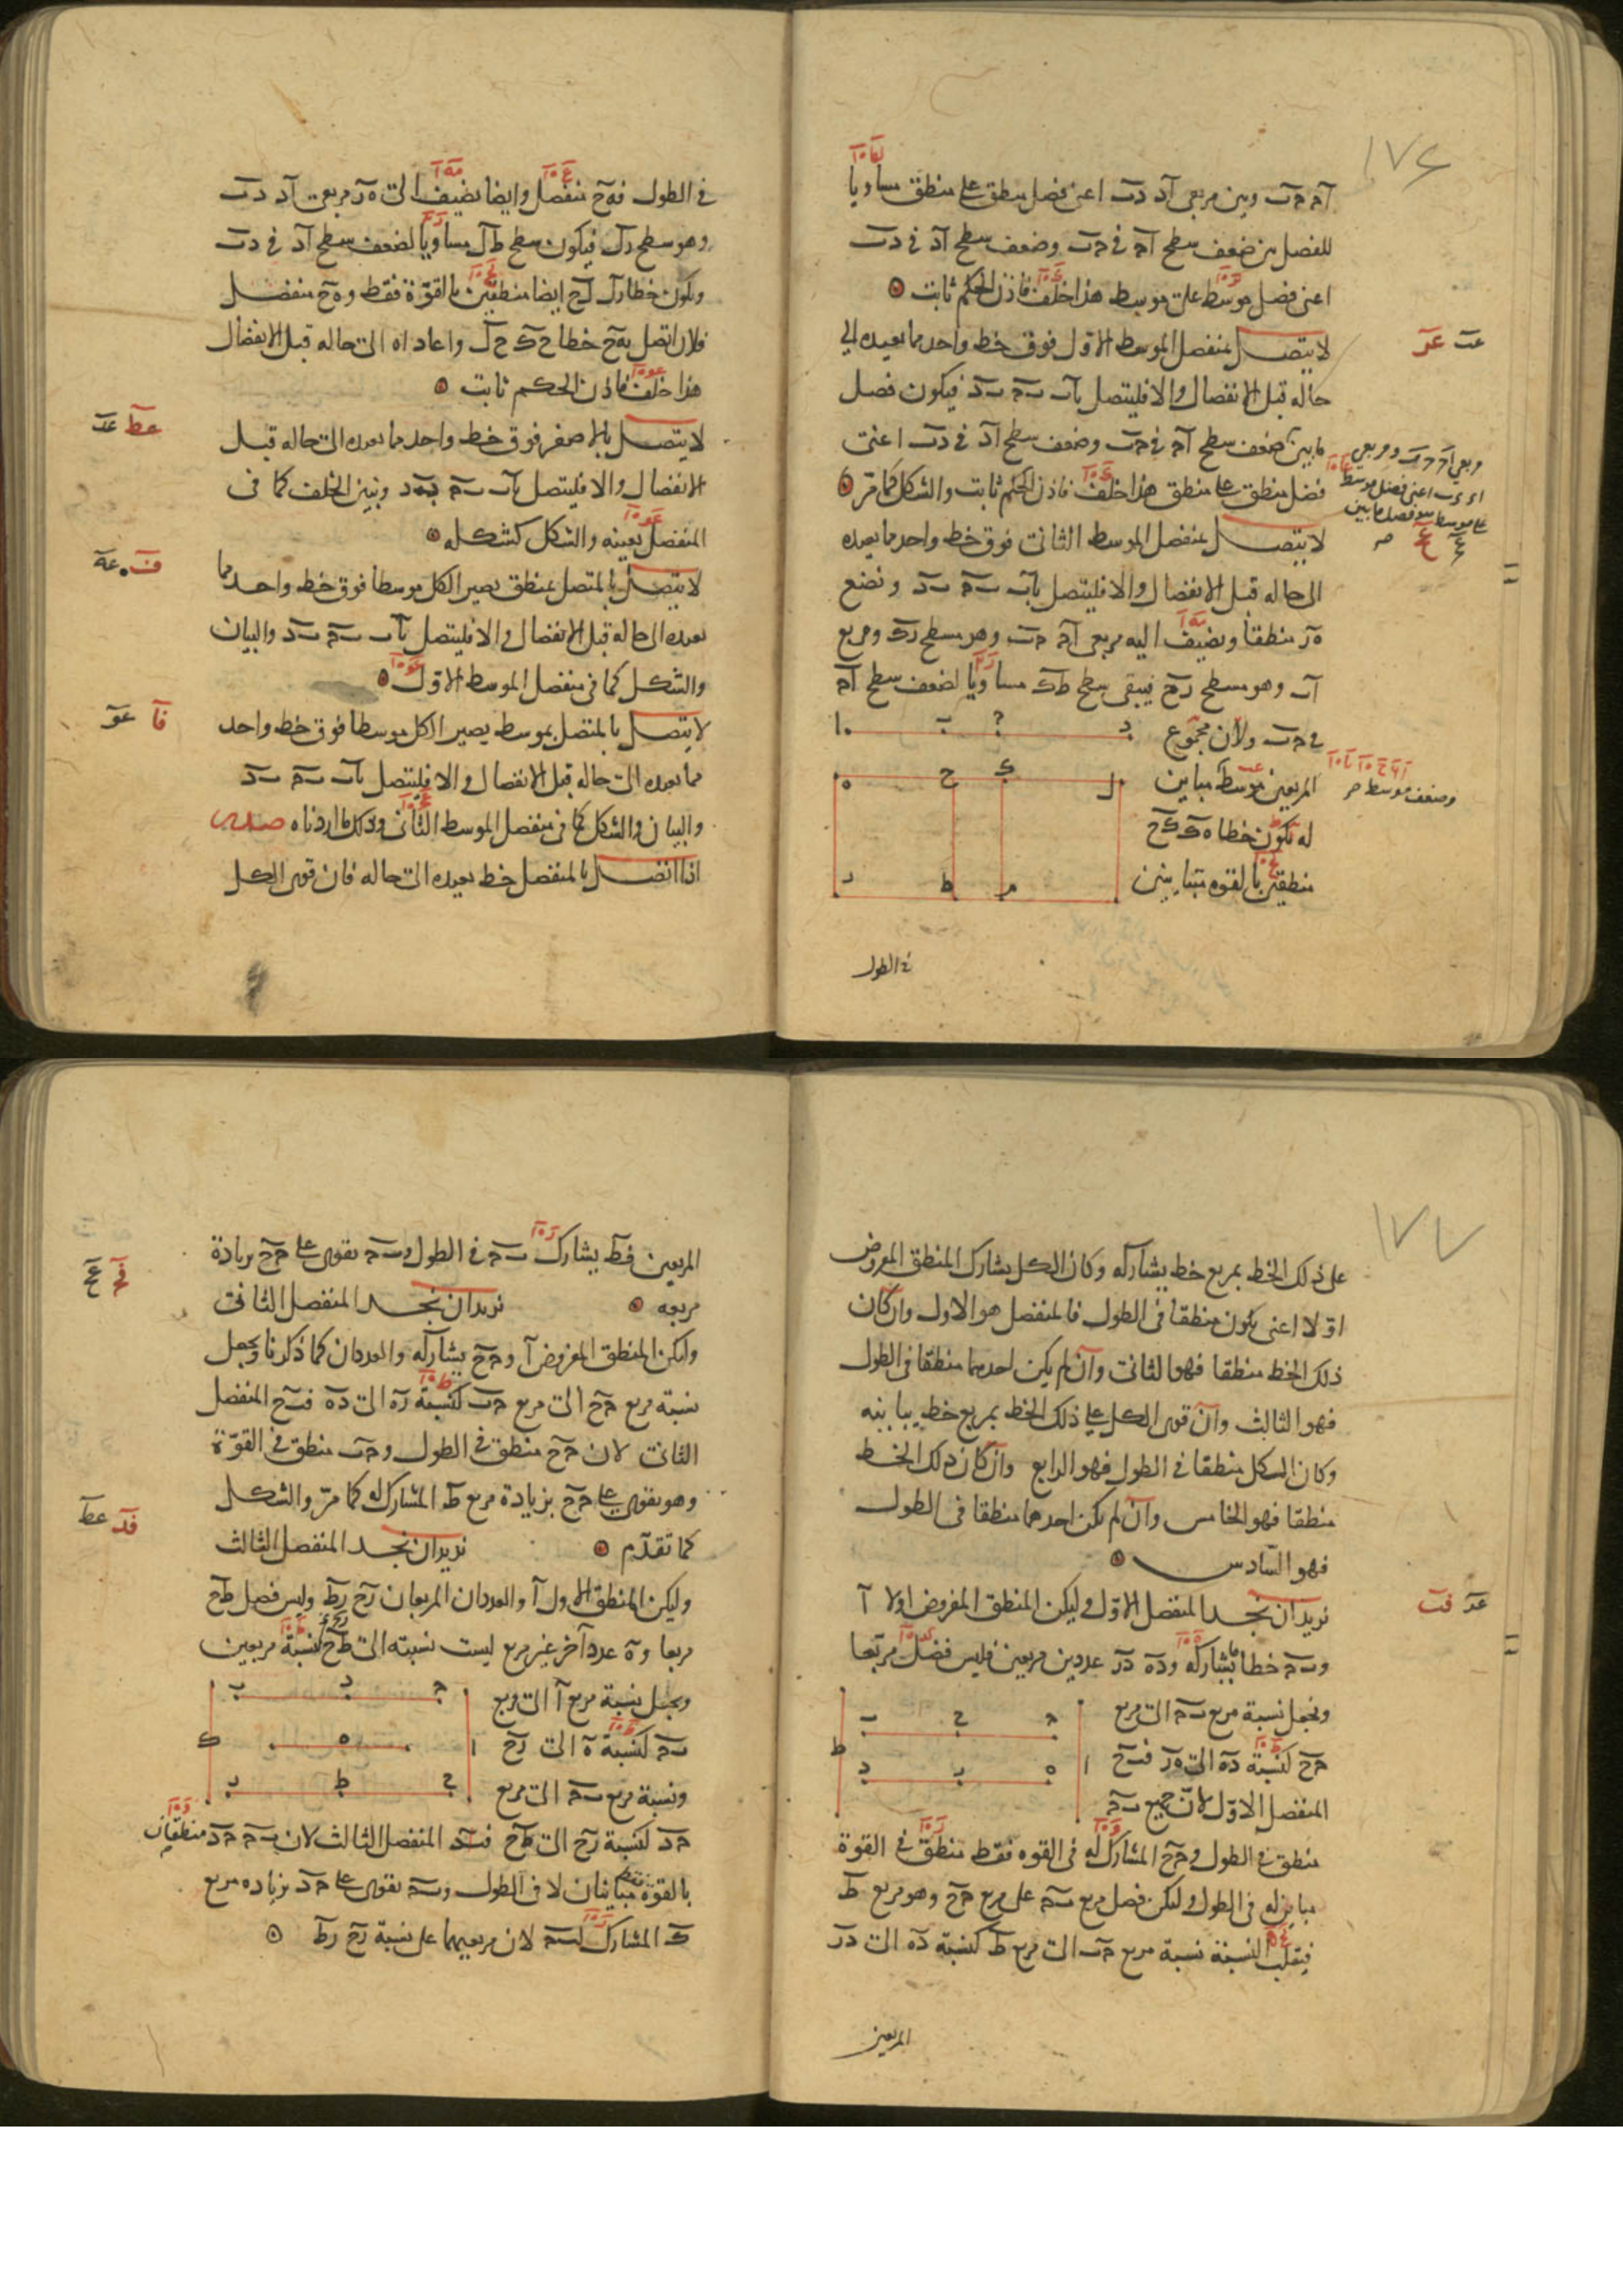 ١٧٤
آح حب وبين مربعي آد دب اعنى فضل منطق على منطق مساويا
للفضل بين ضعف سطح آح في حب وضعف سطح آد في دب
اعنى فضل موسط على موسط هذا خلف فاذن الحكم ثابت
لا يتصل بمنفصل الموسط الاول فوق خط واحد مما يعيده الى
حاله قبل الانفصال والا فليتصل باب بح بد فيكون فضل
ما بين ضعف سطح آح في حب وضعف سطح آد في دب اعنى
فضل منطق على منطق هذا خلف فاذن الحكم ثابت والشكل كما مر
لا يتصل بمنفصل الموسط الثاني فوق خط واحد مما يعيده
الى حاله قبل الانفصال والا فليتصل باب بح بد ونضع
هر منطقا ونضيف اليه مربعي آح حب وهو سطح رك ومربع
آب وهو سطح رح فيبقى سطح طك مساويا لضعف سطح آح
في حب ولان مجموع
المربعين موسط مباين
وضعف موسط
له يكون خطا هك كح
منطقين بالقوه متباينين
في الطول
في الطول فهح منفصل وايضا نضيف الى هر مربعي آد دب
وهو سطح رل فيكون سطح طل مساويا لضعف سطح آد في دب
ويكون خطا هل لح ايضا منطقين بالقوة فقط وهح منفصل
فلان اتصل بهح خطا حك حل واعاداه الى حاله قبل الانفصال
هذا خلف فاذن الحكم ثابت
لا يتصل بالاصغر فوق خط واحد مما يعيده الى حاله قبل
الانفصال والا فليتصل باب بح بد ونبين الخلف كما في
المنفصل بعينه والشكل كشكله
لا يتصل بالمتصل بمنطق يصير الكل موسطا فوق خط واحد مما
يعيده الى حاله قبل الانفصال والا فليتصل باب بح بد والبيان
والشكل كما في منفصل الموسط الاول
لا يتصل بالمتصل بموسط يصير الكل موسطا فوق خط واحد
مما يعيده الى حاله قبل الانفصال والا فليتصل باب بح بد
والبيان والشكل كما في منفصل الموسط الثاني وذلك ما اردناه صدر
اذا اتصل بالمنفصل خط يعيده الى حاله فان قوى الكل
١٧٧
على ذلك الخط بمربع خط يشاركه وكان الكل يشارك المنطق المفروض
اولا اعنى يكون منطقا في الطول فالمنفصل هو الاول وان كان
ذلك الخط منطقا فهو الثاني وان لم يكن احدهما منطقا في الطول
فهو الثالث وان قوى الكل على ذلك الخط بمربع خط يباينه
وكان الكل منطقا في الطول فهو الرابع وان كان ذلك الخط
منطقا فهو الخامس وان لم يكن احدهما منطقا في الطول
فهو السادس
نريد ان نجد المنفصل الاول وليكن المنطق المفروض اولا آ
وبح خطا ما يشاركه وده در عددين مربعين فليس فضل مربعا
ونجعل نسبة مربع بح الى مربع
حح كنسبة ده الى هر فبح
المنفصل الاول لان جميع بح
منطق في الطول وحح المشارك له في القوه فقط منطق في القوة
مباين له في الطول وليكن فضل مربع بح على مربع حح وهو مربع ط
فبقلب النسبة نسبة مربع حب الى مربع ط كنسبة ده الى در
المربعين
المربعين فط يشارك بح في الطول وبح يقوى على حح بزيادة
مربعه نريد ان نجد المنفصل الثاني
وليكن المنطق المفروض آ وحح يشاركه والعددان كما ذكرنا ونجعل
نسبة مربع حح الى مربع حب كنسبة ره الى ده فبح المنفصل
الثاني لان حح منطق في الطول وحب منطق في القوة
وهو يقوى على حح بزيادة مربع ط المشارك له كما مر والشكل
كما تقدم نريد ان نجد المنفصل الثالث
وليكن المنطق الاول آ والعددان المربعان رح رط وليس فضل طح
مربعا وه عدد آخر غير مربع ليست نسبته الى طح كنسبة مربعين
ونجعل نسبة مربع آ الى مربع
بح كنسبة ه الى رح
ونسبة مربع بح الى مربع
حد كنسبة رح الى طح فبد المنفصل الثالث لان بح حد منطقان
بالقوة متباينان لا في الطول وبح يقوى على حد بزياده مربع
ك المشارك لبح لان مربعيهما على نسبة رح رط